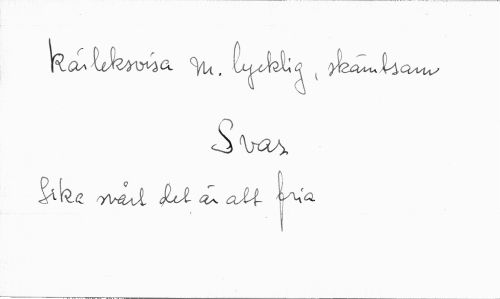 Kärleksvisa m. lycklig, skämtsam
Svar
Lika svårt det är att fria